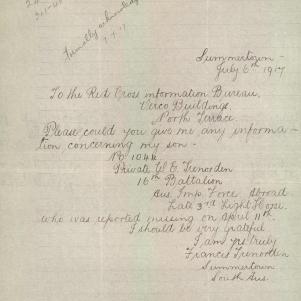 Formally acknowledged
9.7.17
Summertown -
July 6th 1917
To the Red Cross information Bureau,
Verco Buildings,
North Terrace
Please could you give me any informa-
tion concerning my son -
No 1044
Private W E Trenorden
16th Battalion
Aus. Imp. Force Abroad
Late 3rd Light Horse
who was reported missing on April 11th.
I should be very grateful
I am yrs truly
Frances Trenorden
Summertown
South Aus.